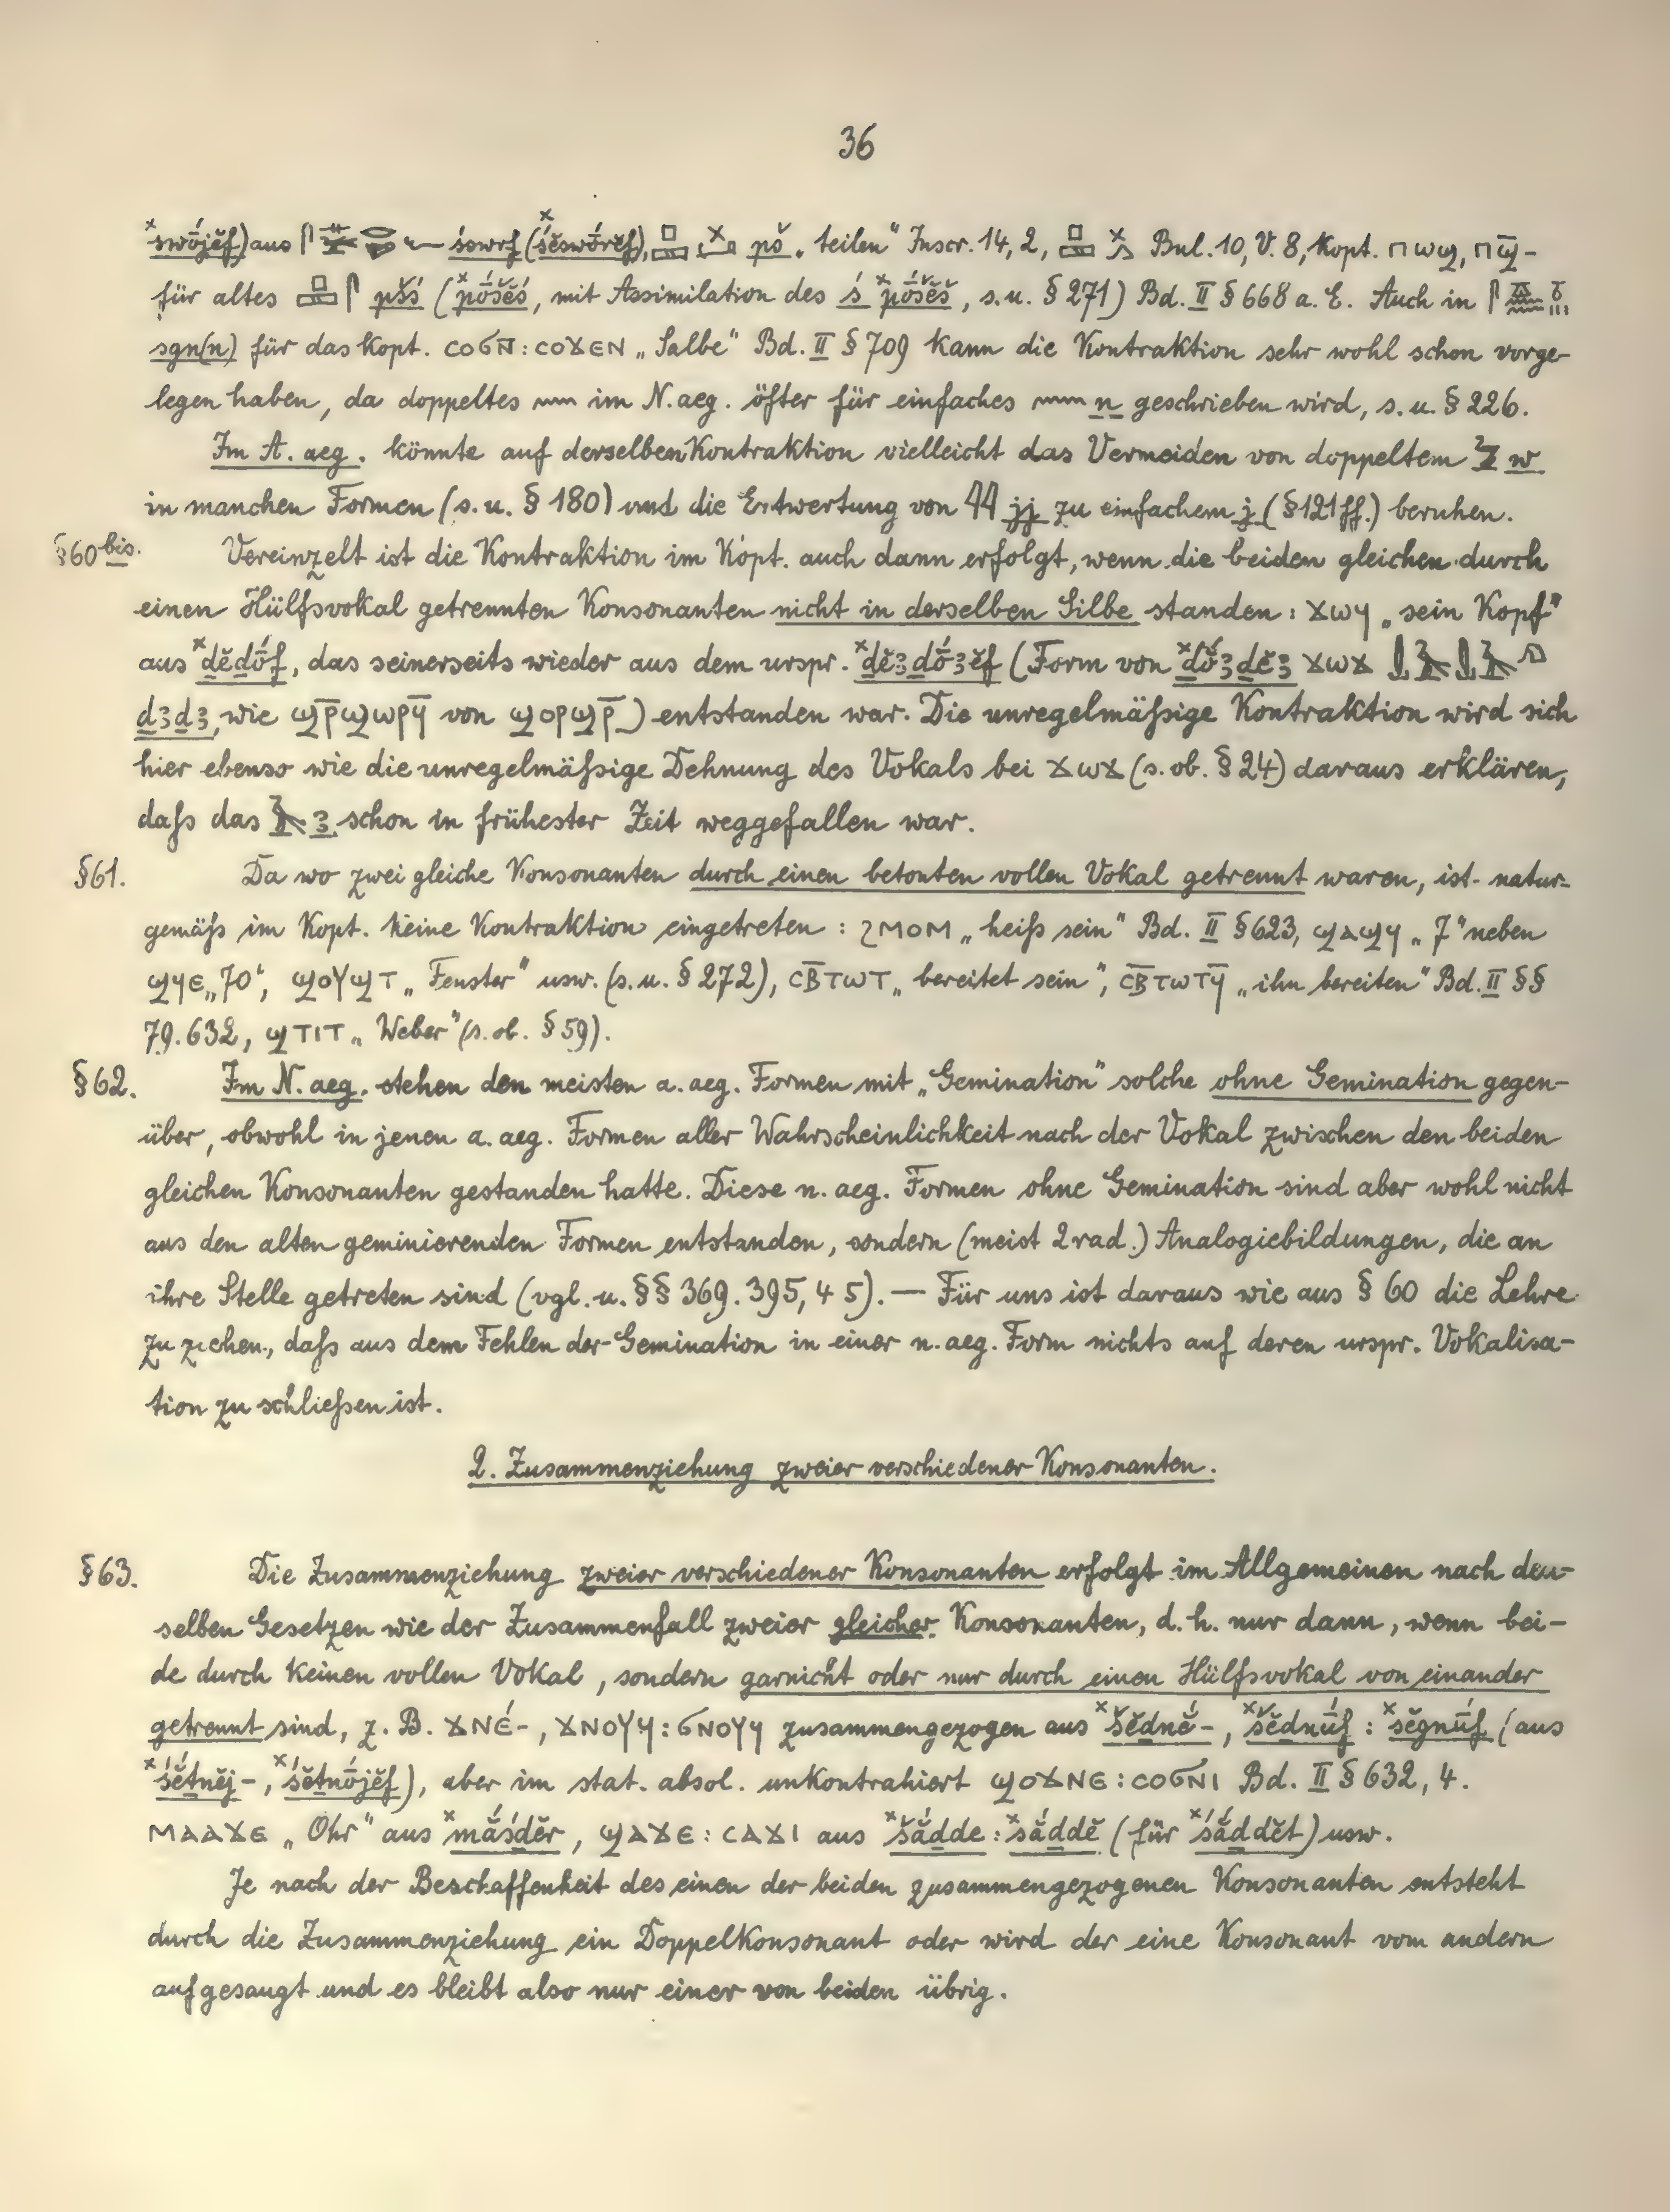 36
swṓjĕf) aus śswrf (śĕswṓrĕf), pš „teilen“ Inscr. 14, 2, Bul. 10, V. 8, kopt. ⲡⲱϣ, ⲡϣ̄-
für altes pšś (ˣpṓšĕś, mit Assimilation des ś ˣpṓšĕš, s. u. § 271) Bd. II § 668 a. E. Auch in
sgn(n) für das kopt. ⲥⲟϭⲛ̄ : ⲥⲟϫⲉⲛ „Salbe“ Bd. II § 709 kann die Kontraktion sehr wohl schon vorge-
legen haben, da doppeltes 𓈖 im N. aeg. öfter für einfaches 𓈖 n geschrieben wird, s. u. § 226.
Im A. aeg. könnte auf derselben Kontraktion vielleicht das Vermeiden von doppeltem 𓅱 w
in manchen Formen (s. u. § 180) und die Entwertung von 𓇋𓇋 jj zu einfachem j (§ 121 ff.) beruhen.
§60 bis. Vereinzelt ist die Kontraktion im Kopt. auch dann erfolgt, wenn die beiden gleichen durch
einen Hülfsvokal getrennten Konsonanten nicht in derselben Silbe standen : ϫⲱϥ „sein Kopf“
aus ˣḏĕḏṓf, das seinerseits wieder aus dem urspr. ˣḏĕꜣḏṓꜣĕf (Form von ˣḏṓꜣḏĕꜣ ϫⲱϫ
ḏꜣḏꜣ, wie ϣⲣ̄ϣⲱⲣϥ̄ von ϣⲟⲣϣⲣ̄) entstanden war. Die unregelmäßige Kontraktion wird sich
hier ebenso wie die unregelmäßige Dehnung des Vokals bei ϫⲱϫ (s. ob. § 24) daraus erklären,
daß das 𓄿 ꜣ schon in frühester Zeit weggefallen war.
§61. Da wo zwei gleiche Konsonanten durch einen betonten vollen Vokal getrennt waren, ist natur-
gemäß im Kopt. keine Kontraktion eingetreten : ϩⲙⲟⲙ „heiß sein“ Bd. II § 623, ϣⲁϣϥ „7“ neben
ϣϥⲉ „70“, ϣⲟⲩϣⲧ „Fenster“ usw. (s. u. § 272), ⲥⲃ̄ⲧⲱⲧ „bereitet sein“, ⲥⲃ̄ⲧⲱⲧϥ̄ „ihn bereiten“ Bd. II §§
79. 632, ϣⲧⲓⲧ „Weber“ (s. ob. § 59).
§62. Im N. aeg. stehen den meisten a. aeg. Formen mit „Gemination“ solche ohne Gemination gegen-
über, obwohl in jenen a. aeg. Formen aller Wahrscheinlichkeit nach der Vokal zwischen den beiden
gleichen Konsonanten gestanden hatte. Diese n. aeg. Formen ohne Gemination sind aber wohl nicht
aus den alten geminierenden Formen entstanden, sondern (meist 2rad.) Analogiebildungen, die an
ihre Stelle getreten sind (vgl. u. §§ 369. 395, 4 5). — Für uns ist daraus wie aus § 60 die Lehre
zu ziehen, daß aus dem Fehlen der Gemination in einer n. aeg. Form nichts auf deren urspr. Vokalisa-
tion zu schließen ist.
2. Zusammenziehung zweier verschiedener Konsonanten.
§63. Die Zusammenziehung zweier verschiedener Konsonanten erfolgt im Allgemeinen nach den-
selben Gesetzen wie der Zusammenfall zweier gleicher Konsonanten, d. h. nur dann, wenn bei-
de durch keinen vollen Vokal, sondern garnicht oder nur durch einen Hülfsvokal von einander
getrennt sind, z. B. ϫⲛⲉ́-, ϫⲛⲟⲩϥ : ϭⲛⲟⲩϥ zusammengezogen aus ˣšĕḏnĕ́-, ˣšĕḏnū́f : ˣsĕgnū́f (aus
ˣśĕṯnĕj-, ˣśĕṯnṓjĕf), aber im stat. absol. unkontrahiert ϣⲟϫⲛⲉ : ⲥⲟϭⲛⲓ Bd. II § 632, 4.
ⲙⲁⲁϫⲉ „Ohr“ aus ˣmắsḏĕr, ϣⲁϫⲉ : ⲥⲁϫⲓ aus ˣšắḏde : ˣsắḏdĕ (für ˣśắḏdĕt) usw.
Je nach der Beschaffenheit des einen der beiden zusammengezogenen Konsonanten entsteht
durch die Zusammenziehung ein Doppelkonsonant oder wird der eine Konsonant vom andern
aufgesaugt und es bleibt also nur einer von beiden übrig.